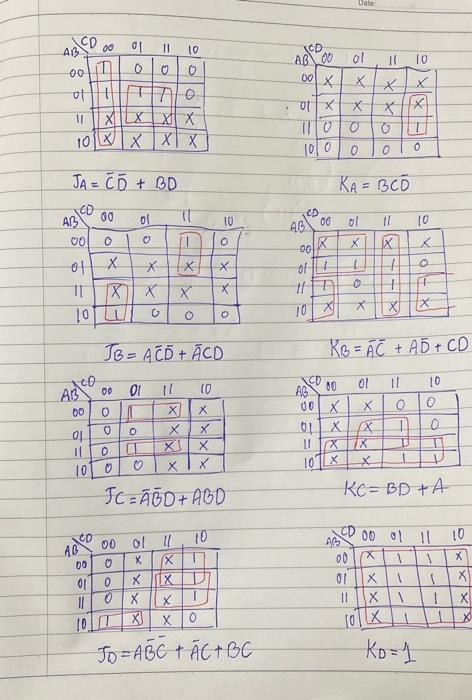 Date:
AB\CD 00 01 11 10
00 1 0 0 0
01 1 1 1 0
11 X X X X
10 X X X X
JA = C̄D̄ + BD
AB\CD 00 01 11 10
00 X X X X
01 X X X X
11 0 0 0 1
10 0 0 0 0
KA = BCD̄
AB\CD 00 01 11 10
00 0 0 1 0
01 X X X X
11 X X X X
10 1 0 0 0
JB = AC̄D̄ + ĀCD
AB\CD 00 01 11 10
00 X X X X
01 1 1 1 0
11 1 0 1 1
10 X X X X
KB = ĀC̄ + AD̄ + CD
AB\CD 00 01 11 10
00 0 1 X X
01 0 0 X X
11 0 1 X X
10 0 0 X X
JC = ĀB̄D + ABD
AB\CD 00 01 11 10
00 X X 0 0
01 X X 1 0
11 X X 1 1
10 X X 1 1
KC = BD + A
AB\CD 00 01 11 10
00 0 X X 1
01 0 X X 1
11 0 X X 1
10 1 X X 0
JD = AB̄C̄ + ĀC + BC
AB\CD 00 01 11 10
00 X 1 1 X
01 X 1 1 X
11 X 1 1 X
10 X 1 1 X
KD = 1